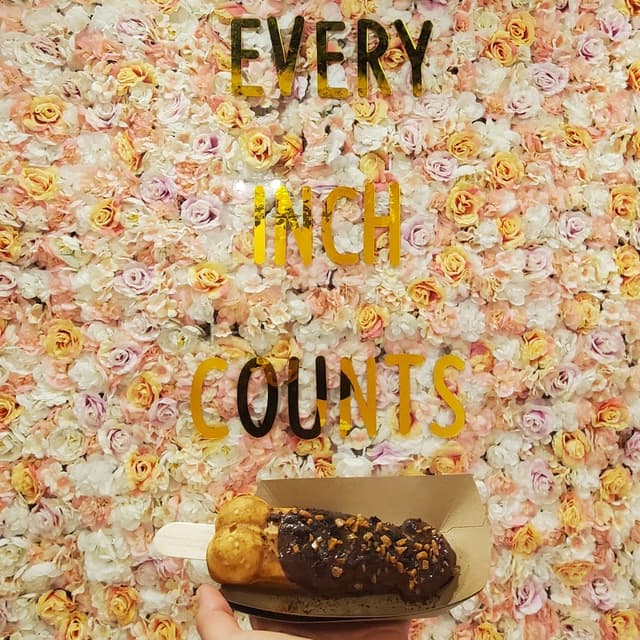 EVERY
INCH
COUNTS